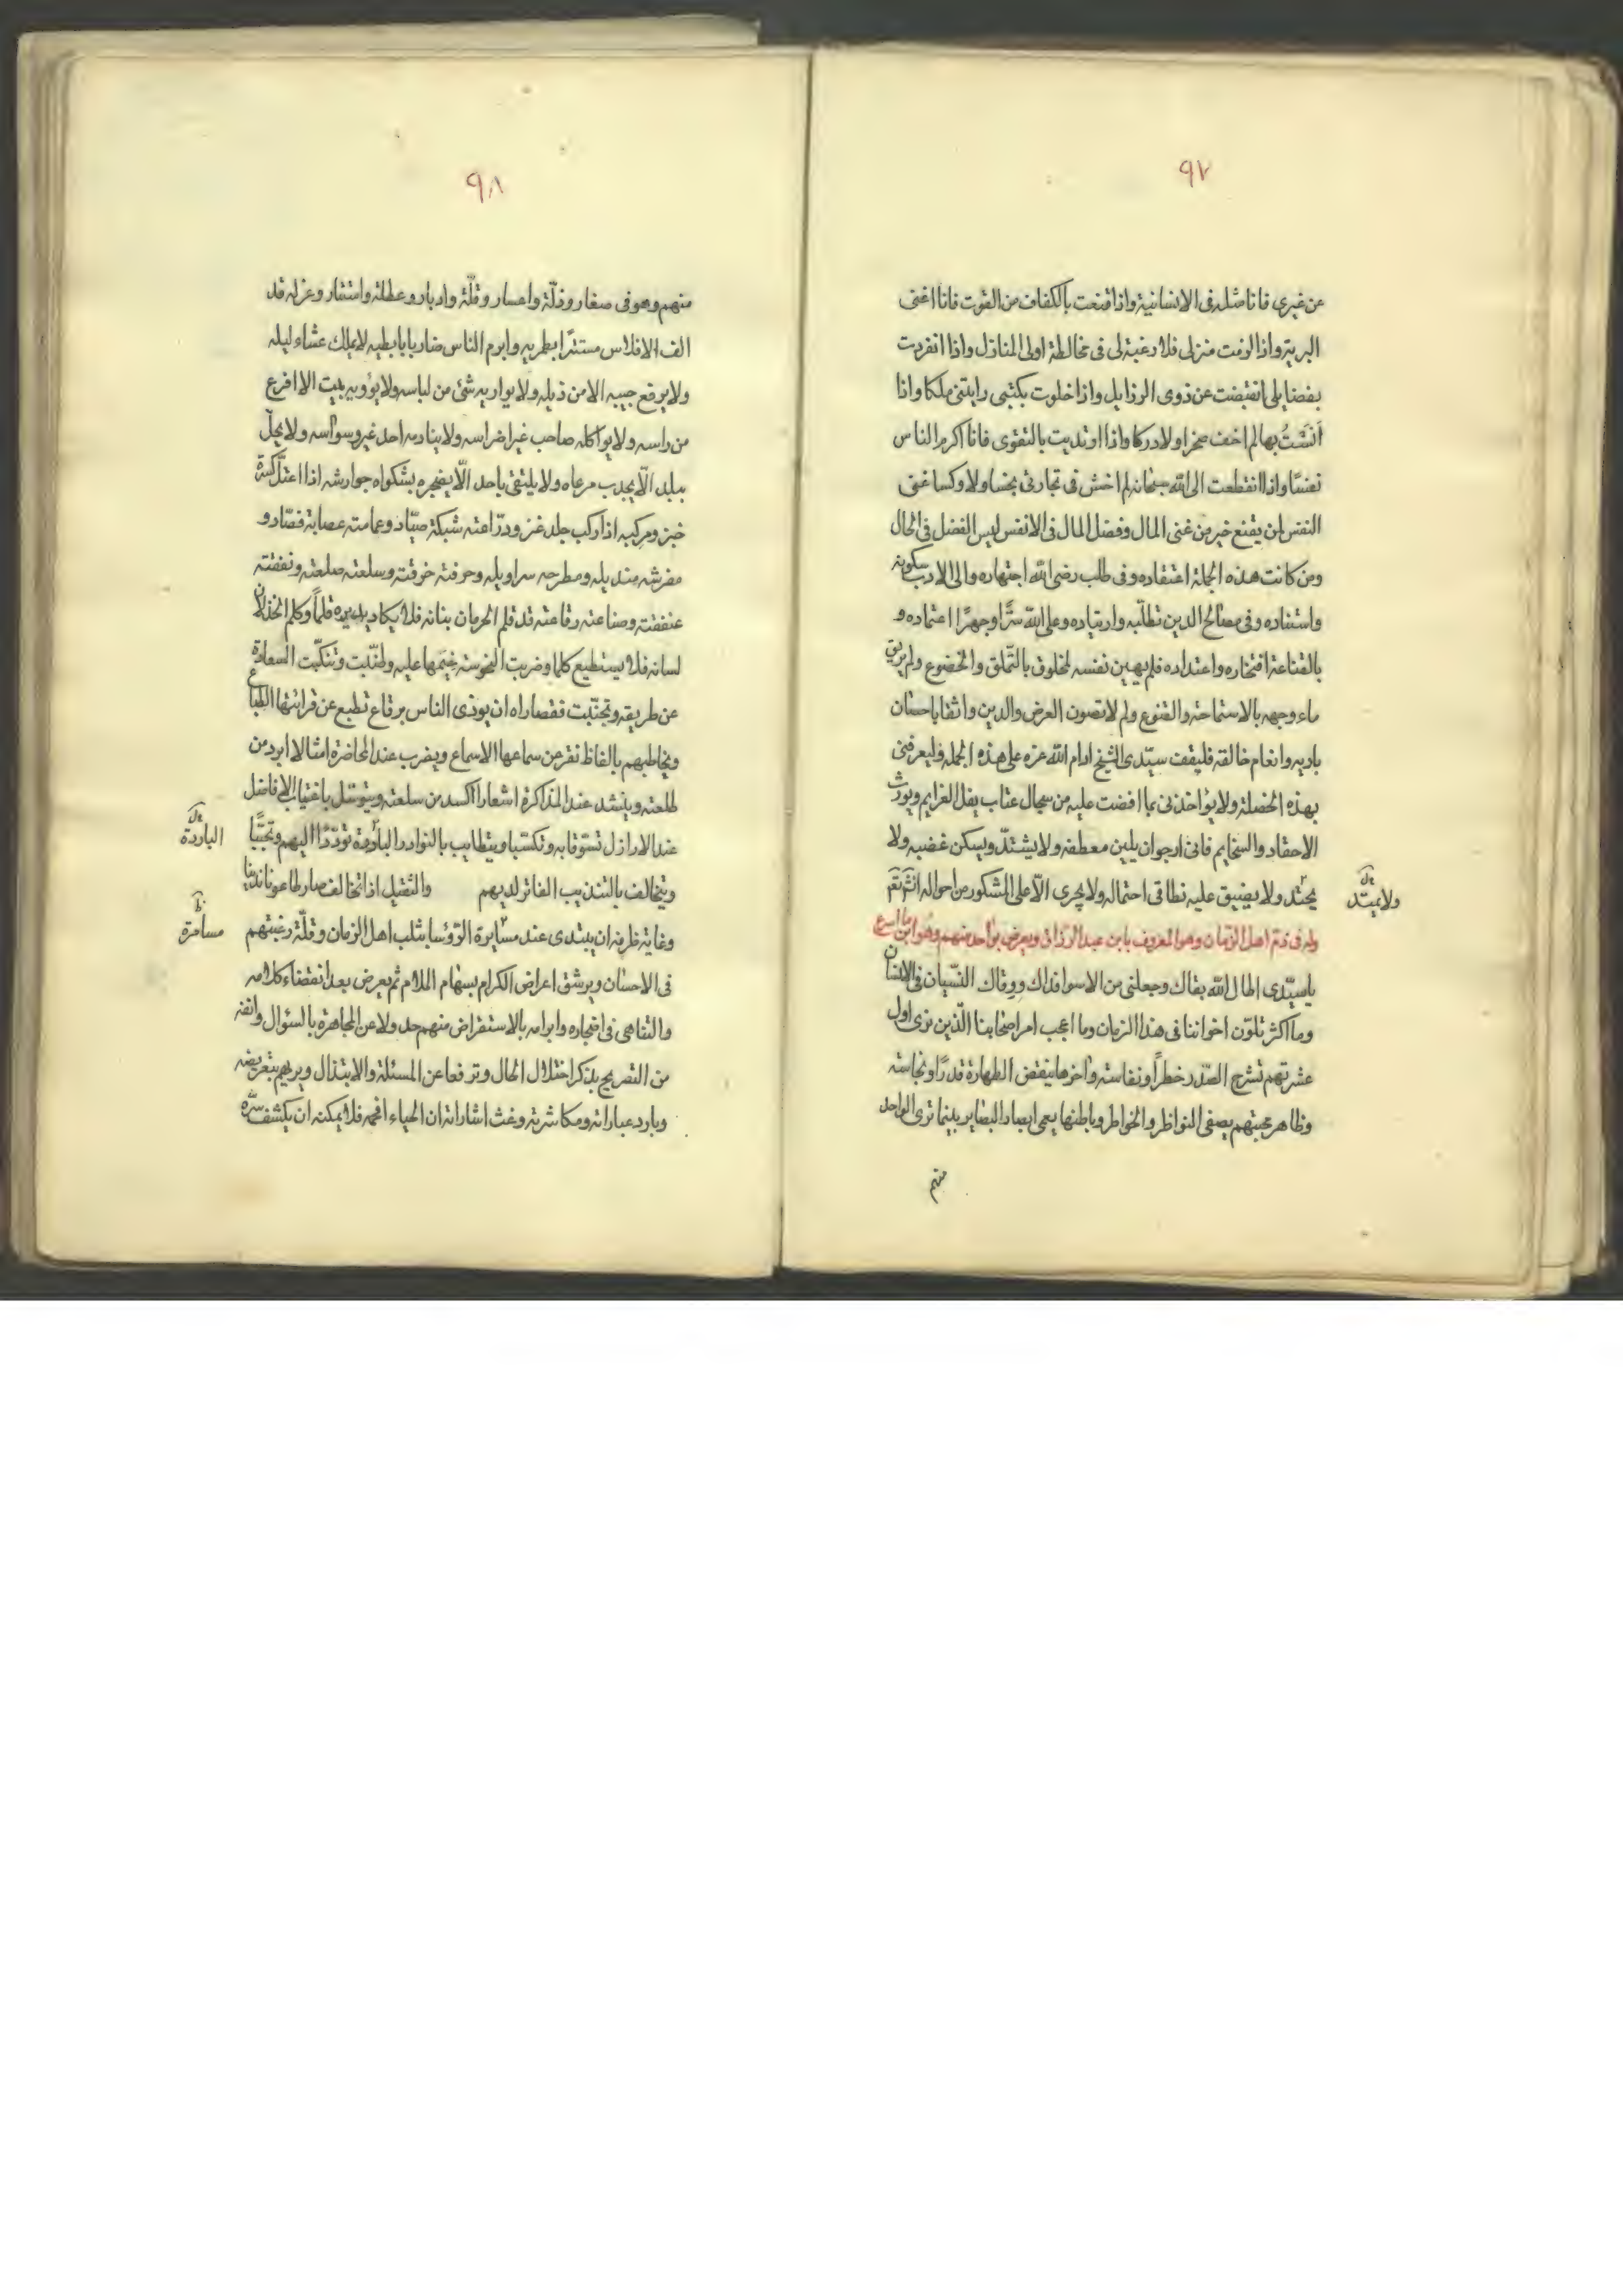 ٩٧
عن غيري فانا مثله في الانسانية واذا قنعت بالكفاف من القوت فانا اغنى
البرية واذا لزمت منزلي فلا رغبة لي في مخالطة اولي المنازل واذا انفردت
بفضايلي انقبضت عن ذوى الرذايل واذا خلوت بكتبي رايتني ملكا واذا
انست بها لم اخف ضررا ولا دركا واذا ارتديت بالتقوى فانا اكرم الناس
نفسا واذا انقطعت الى الله سبحانه لم اخش في تجارتي بخسا ولا وكسا غنى
النفس لمن يقنع خير من غنى المال وفضل المال في الانفس ليس الفضل في الحال
ومن كانت هذه الجملة اعتقاده وفي طلب رضى الله اجتهاده والى الادب سكونه
واستناده وفى مصالح الدين تطلبه وارتياده وعلى الله سرًّا وجهرًا اعتماده و
بالقناعة افتخاره واعتداده فلم يهين نفسه لمخلوق بالتملق والخضوع ولم يريق
ماء وجهه بالاستماحة والقنوع ولم لا تصون العرض والدين واثقا باحسان
باريه وانعام خالقه فليقف سيّدى الشيخ ادام الله عزه على هذه الجمله وليعرفنى
بهذه الخصلة ولا يؤاخذنى بما افضت عليه من سجال عتاب يفل الغرايم ويورث
الاحقاد والسخايم فانى ارجوان يلين معطفه ولا يشتدّ ويسكن غضبه ولا
يحتد ولا يضيق عليه نطاق احتماله ولا يجرى الّا على المشكور من احواله انشآء
ولا يمتد
وله فى ذم اهل الزمان وهو المعروف بابن عبد الرزاق ويعرض بواحد منهم وهو
ياسيّدى اطال الله بقاك وجعلنى من الاسوا فداك ووقاك النسيان فى الانسان
وما اكثر تلوّن اخواننا فى هذا الزمان وما اعجب امر اصحابنا الّذين نرى اول
عشرتهم تشرح الصّدر خطراً ونفاسته واخرها ينقض الطهارة قذرًا ونجاسته
وظاهر محبتهم يصفى النواظر والخواطر وباطنها يعمى ابصار البصاير بينما ترى الواحد
منهم
٩٨
منهم وهو فى صغار وذلّة واعسار وقلّة وادبار وعطلة وافتقار وعزله قد
الف الافلاس مستترًا بطمريه وابرم الناس ضاربا باباطيه لا يملك عشاء ليله
ولا يرقع جيبه الا من ذيله ولا يواريه شئ من لباسه ولا يؤويه بيت الا افرغ
من راسه ولا يواكله صاحب غير اضراسه ولا ينادمه احد غير وسواسه ولا يحلّ
ببلد الّا يجدب مرعاه ولا يلتقى باحد الّا يضجره بشكواه جوارشه اذا اعتلّ كسرة
خبز ومركبه اذا ركب جلد عنز ودرّاعته شبكة صيّاد وعمامته عصابة فصّاد و
مفرشه منديله ومطرحه سراويله وحرفته خرقته وسلعته صلعته ونفقته
عنفقته وصناعته رقاعته قد قلم الحرمان بنانه فلا يكاد يدير بيده قلماً وكلم الخذلان
لسانه فلا يستطيع كلما وضربت النحوسة خيمها عليه وطنّبت وتنكّبت السعادة
عن طريقه وتجنّبت فقصاراه ان يوذى الناس برقاع تطبع عن قرائتها الطباع
ويخاطبهم بالفاظ نفر عن سماعها الاسماع ويضرب عند المحاضرة امثالا ابرد من
طلعته وينشد عند المذاكرة اشعارا اكسد من سلعته ويتوسّل باغتياب الافاضل
عند الاراذل تسوّقا به وتكسّبا ويتطايب بالنوادر الباردة تودّدًا اليهم وتحبّبًا
الباردة
ويتخالف بالتنديب الفاتر لديهم والثقيل اذا تخالف صار طاعونا
وغاية ظرفه ان يبتدى عند مسايرة الرؤسا بثلب اهل الزمان وقلّة رغبتهم
مسامرة
فى الاحسان ويرشق اعراض الكرام بسهام الملام ثم يعرض بعد انقضاء كلامه
والتناهى فى اضجاره وابرامه بالاستقراض منهم حد ولا عن المجاهرة بالسؤال وانفة
من التصريح بذكر اختلال الحال وترفعا عن المسئلة والابتذال ويريهم بتعريضه
وبارد عباراته ومكاشرته وغث اشاراته ان الحياء افحمه فلا يمكنه ان يكشف سرّه